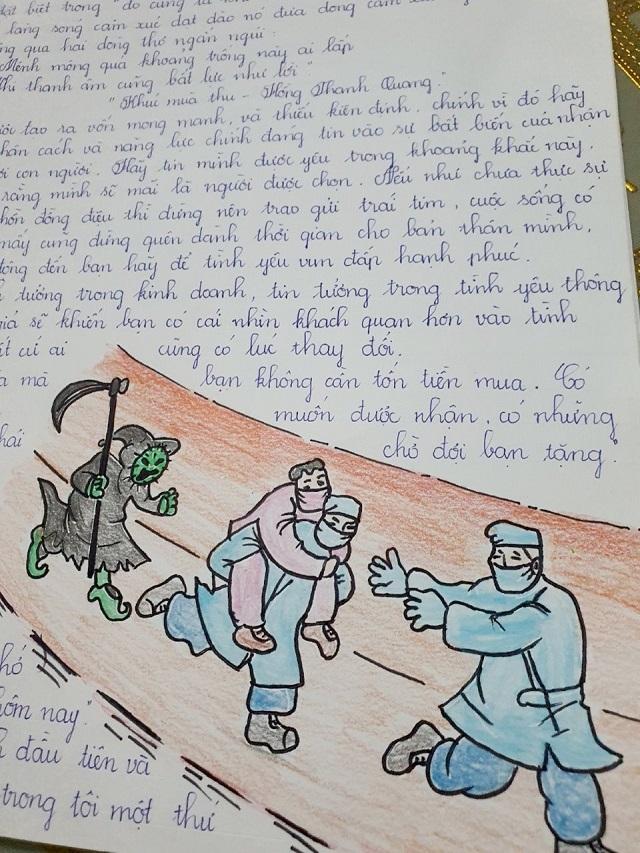 đặt biết trong "đó cũng là
lang song cảm xúc dạt dào nó đưa dòng cảm
qua hai dòng thơ ngắn ngủi:
Mênh mông quá khoảng trống này ai lấp
Khi thanh âm cũng bất lực như lời"
"Khúc mùa thu - Hồng Thanh Quang."
tạo ra vốn mong manh, và thiếu kiên định. chính vì đó hãy
nhân cách và năng lực chính đáng tin vào sự bất biến của nhân
con người. Hãy tin mình được yêu trong khoảng khắc này.
rằng mình sẽ mãi là người được chọn. Nếu như chưa thực sự
đồng điệu thì đừng nên trao gửi trái tim, cuộc sống có
mấy cũng đừng quên dành thời gian cho bản thân mình,
đến bạn hãy để tình yêu vun đắp hạnh phúc.
tưởng trong kinh doanh, tin tưởng trong tình yêu thông
giá sẽ khiến bạn có cái nhìn khách quan hơn vào tình
cứ ai cũng có lúc thay đổi.
mà bạn không cần tốn tiền mua. Có
muốn được nhận, có những
hai chờ đợi bạn tặng.
hôm nay."
đầu tiên và
trong tôi một thứ